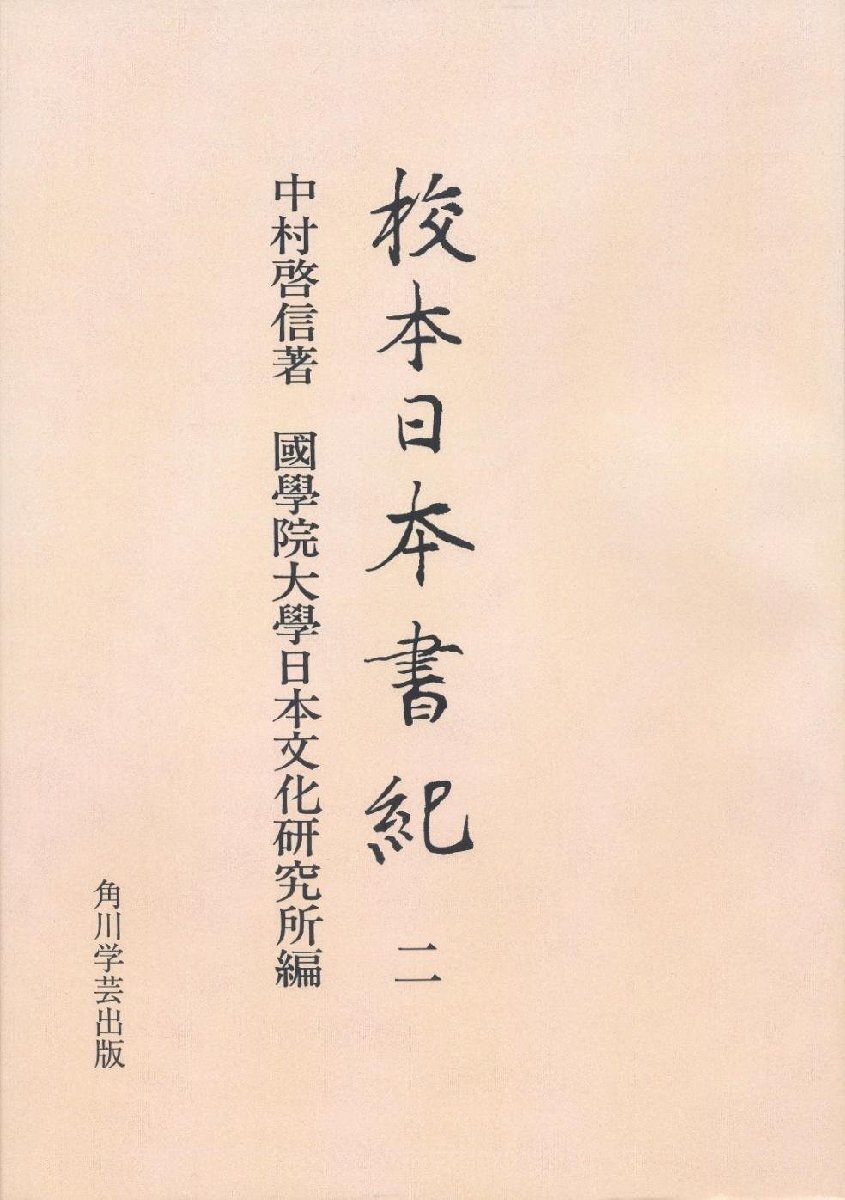 校本日本書紀 二
中村啓信著 國學院大學日本文化研究所編
角川学芸出版